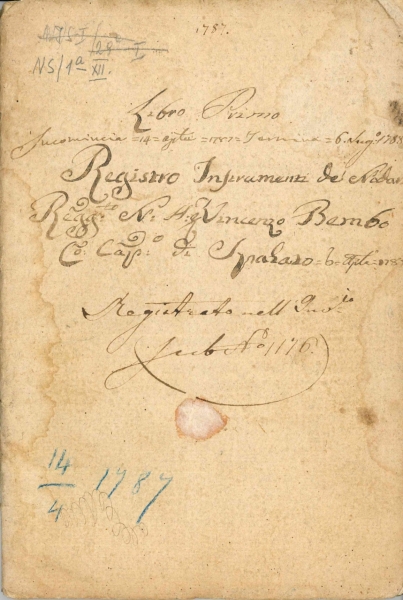 1787.
NS/1ª
XII.
Libro Primo
Incomincia = 14 = = 1787 = Termina = 6 Augº 1788
Registro Instrumenti de Nodari
Regg.tº N. H. Vincenzo Bembo
Co: Capº di Spalato = 6 = = 1787
Registrato nell
sub Nº 1176.
14
4
1787